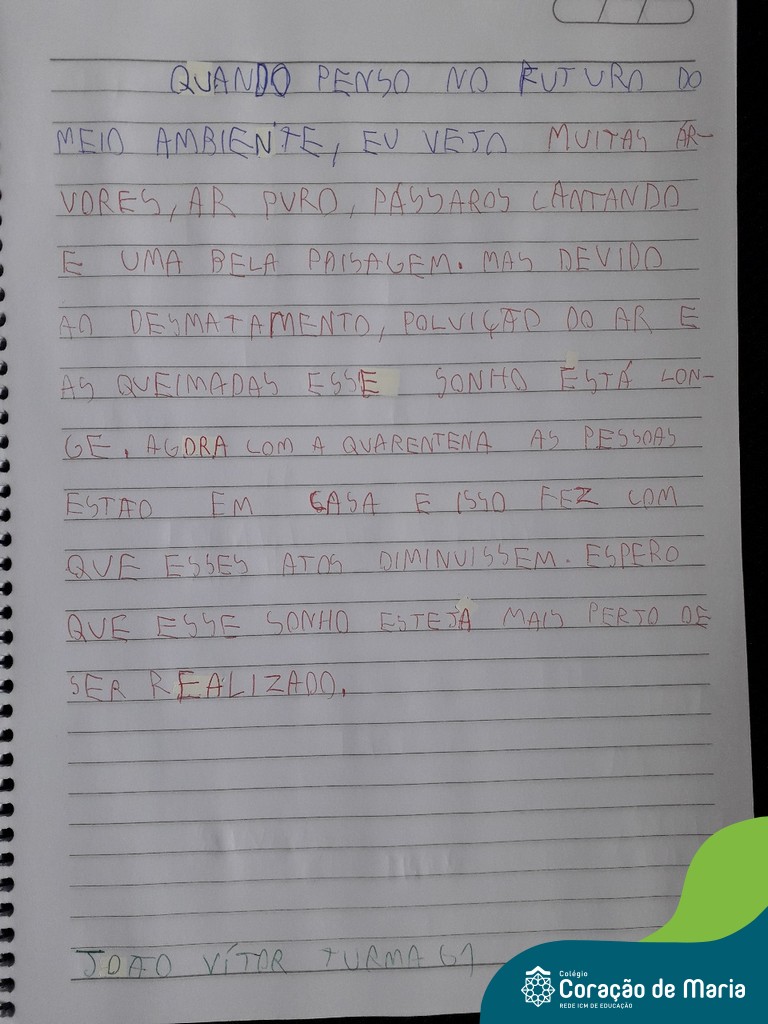 QUANDO PENSO NO FUTURO DO
MEIO AMBIENTE, EU VEJO MUITAS ÁR-
VORES, AR PURO, PÁSSAROS CANTANDO
E UMA BELA PAISAGEM. MAS DEVIDO
AO DESMATAMENTO, POLUIÇÃO DO AR E
AS QUEIMADAS ESSE SONHO ESTÁ LON-
GE. AGORA COM A QUARENTENA AS PESSOAS
ESTÃO EM CASA E ISSO FEZ COM
QUE ESSES ATOS DIMINUISSEM. ESPERO
QUE ESSE SONHO ESTEJA MAIS PERTO DE
SER REALIZADO.
JOÃO VÍTOR TURMA 61
Colégio
Coração de Maria
REDE ICM DE EDUCAÇÃO